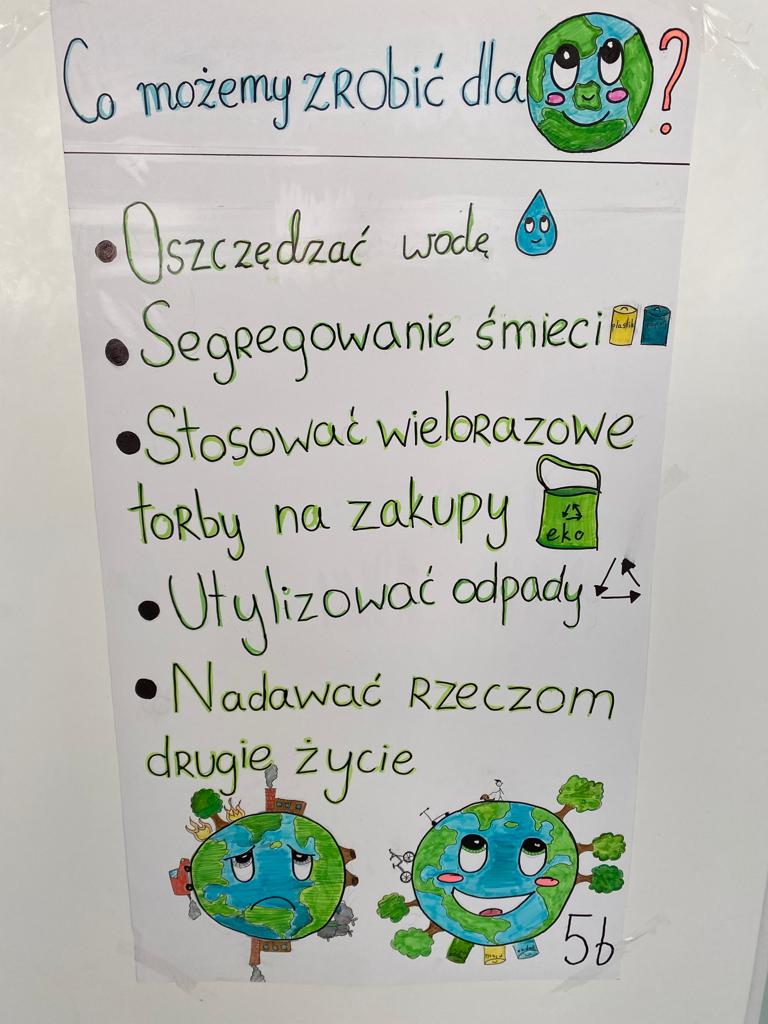 Co możemy zRobić dla ?
• Oszczędzać wodę
• Segregowanie śmieci
plastik
• Stosować wielorazowe
torby na zakupy
eko
• Utylizować odpady
• Nadawać rzeczom
drugie życie
5b